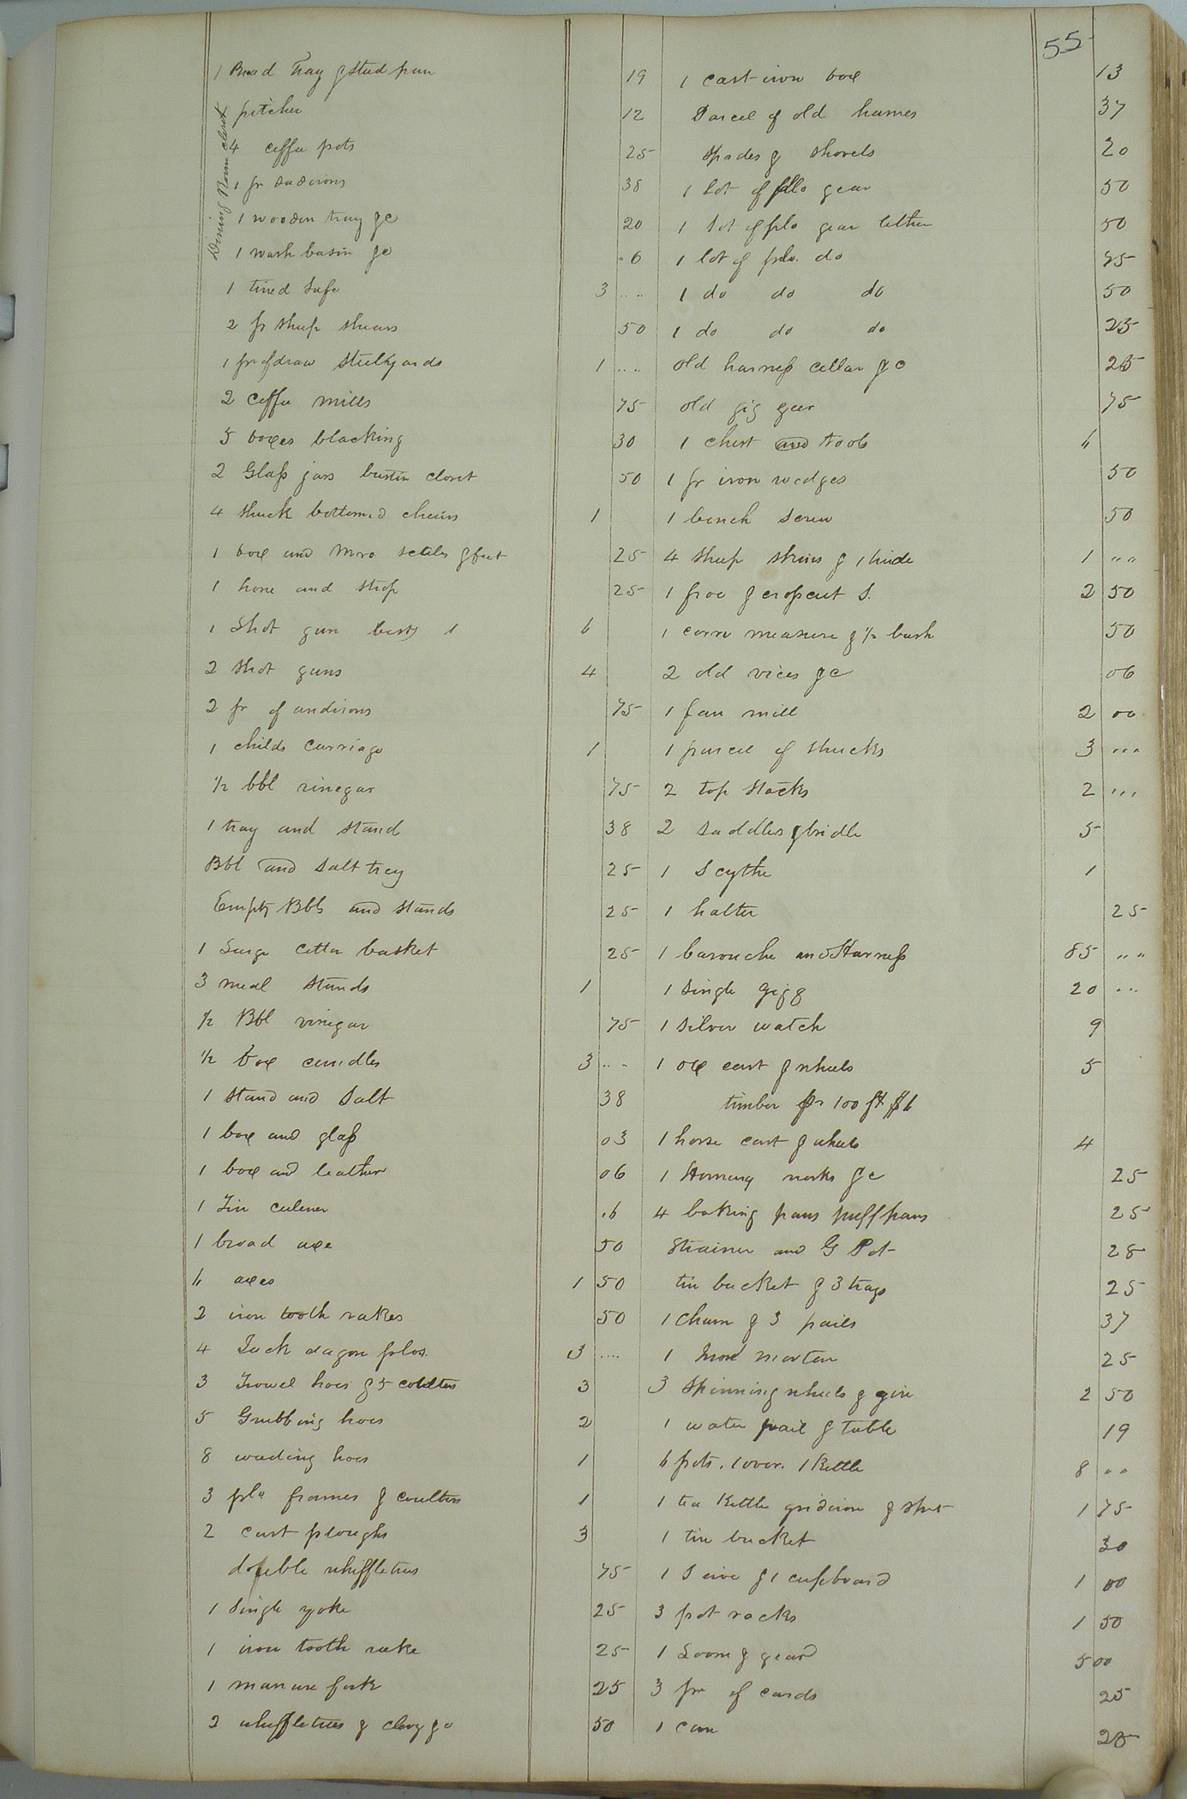 55
Dining Room closet
1 Bread tray & stud pan 19
pitcher 12
4 coffee pots 25
1 pr sadirons 38
1 wooden tray &c 20
1 wash basin &c .6
1 tined safe 3 ....
2 pr sheep shears 50
1 pr of draw stillyards 1 ....
2 coffee mills 75
5 boxes blacking 30
2 Glass jars closet 50
4 shuck bottomed chairs 1
1 box and scales & feet 25
1 hone and strop 25
1 Shot gun best 6
2 shot guns 4
2 pr of andirons 75
1 childs carriage 1
1/2 bbl vinegar 75
1 tray and stand 38
Bbl and salt tray 25
Empty Bbls and stands 25
1 Large cotton basket 25
3 meal stands 1
1/2 Bbl vinegar 75
1/2 box candles 3 ...
1 stand and salt 38
1 box and glass 03
1 box and leather 06
1 Tin .6
1 broad axe 50
4 axes 1 50
2 iron tooth rakes 50
4 dagon plos. 3 ....
3 Trowel hoes & 5 coulters 3
5 Grubbing hoes 2
8 weeding hoes 1
3 plo frames & coulters 1
2 cart ploughs 3
double whiffletrees 75
1 single yoke 25
1 iron tooth rake 25
1 manure fork 25
2 whiffletrees & clevy &c 50
1 cast-iron box 13
Parcel of old hames 37
Spades & shovels 20
1 lot of plo gear 50
1 lot of plo gear 50
1 lot of plo. do 75
1 do do do 50
1 do do do 25
old harness collar &c 25
old gig gear 75
1 chest and tools 4
1 pr iron wedges 50
1 bench screw 50
4 sheep skins & 1 hide 1 ....
1 froe & crosscut S. 2 50
1 corn measure & 1/2 bush 50
2 old vices &c 06
1 fan mill 2 00
1 parcel of shucks 3 ...
2 top stacks 2 ...
2 saddles & bridle 5
1 Scythe 1
1 halter 25
1 barouche and Harness 85 ....
1 single gigg 20 ...
1 silver watch 9
1 ox cart & wheels 5
timber pr 100 ft $6
1 horse cart & wheels 4
1 &c 25
4 baking pans puff pans 25
Strainer and G Pot 28
tin bucket & 3 trays 25
1 Churn & 3 pails 37
1 Iron morter 25
3 Spinning wheels & gin 2 50
1 water pail & table 19
6 pots. 1 oven. 1 Kettle 8 ..
1 tea Kettle gridiron & spit 1 75
1 tin bucket 30
1 Seive & 1 cupboard 1 00
3 pot racks 1 50
1 Loom & geard 5 00
3 pr of cards 25
1 can 25